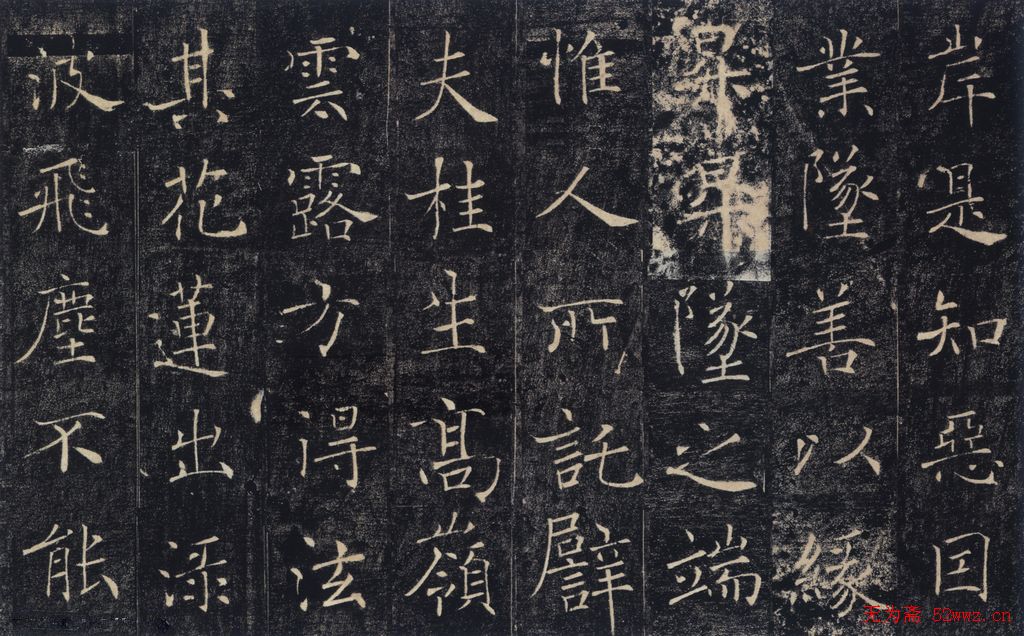 岸是知惡囙
業墜善以緣
昇昇墜之端
惟人所託譬
夫桂生髙嶺
雲露方得泫
其花蓮出渌
波飛塵不能
无为斋 52wwz.cn